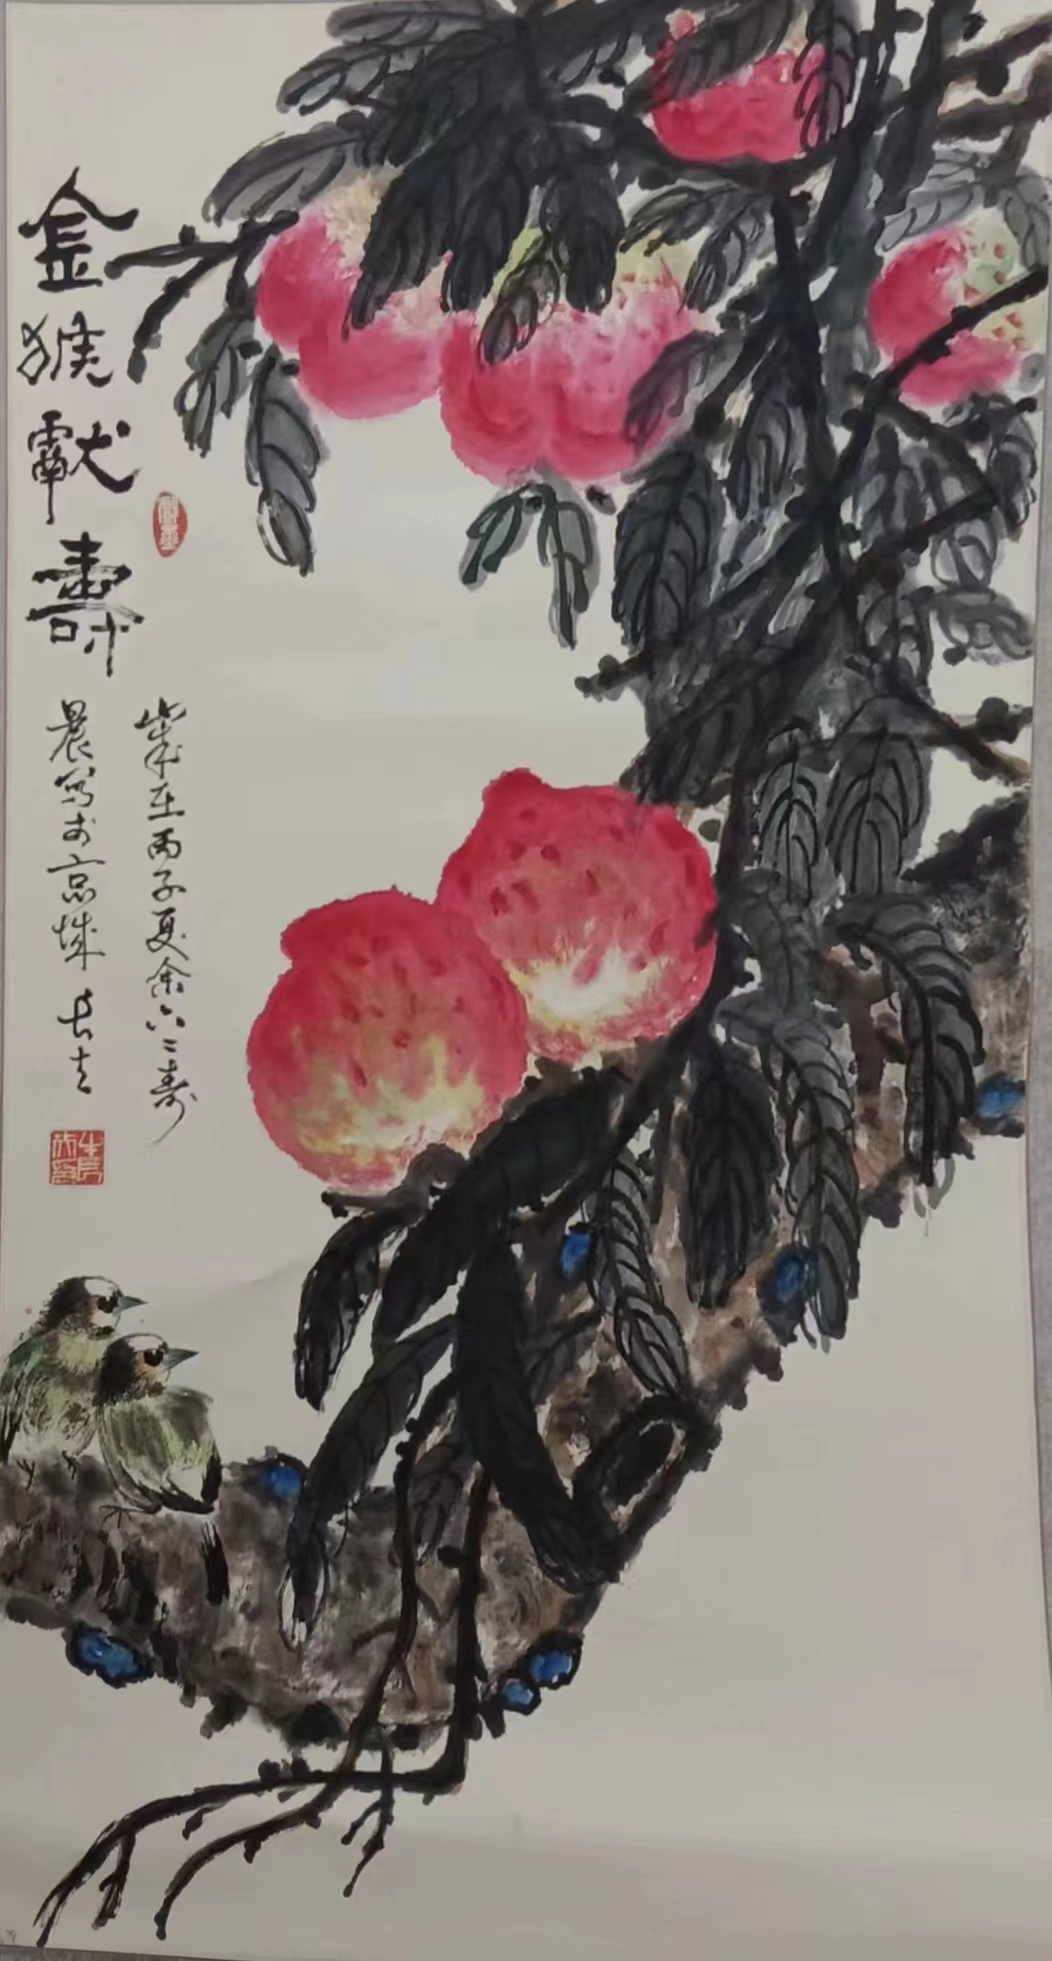 金猴献寿
岁在丙子夏余六二寿
晨写于京城